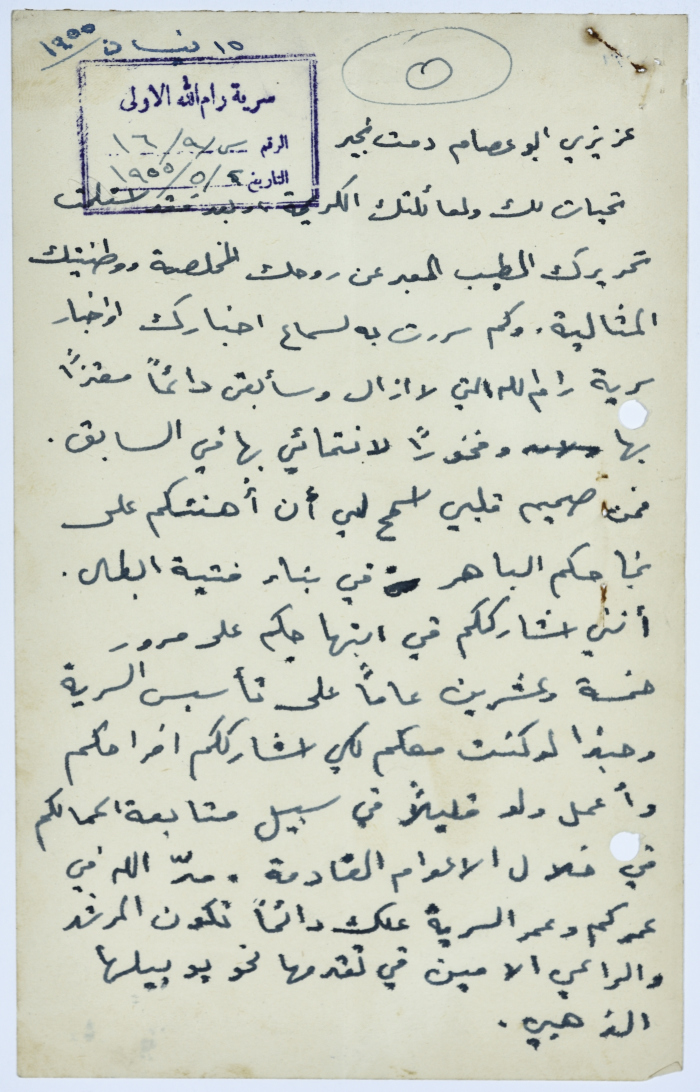 ١٥ نيسان ١٩٥٥
سرية رام الله الاولى
الرقم س/٩/١٦
التاريخ ٢/٥/١٩٥٥
عزيزي ابو عصام دمت بخير
تحيات لك ولعائلتك الكريمة وبعد فقد استلمت
تحريرك الطيب المعبر عن روحك المخلصة ووطنيتك
المثالية. وكم سررت به لسماع اخبارك واخبار
سرية رام الله التي لا ازال وسأبقى دائماً معتزاً
بها وفخوراً لانتمائي بها في السابق.
فمن صميم قلبي اسمح لي أن أهنئكم على
نجاحكم الباهر في بناء فتية ابطال.
أنني اشارككم في ابتهاجكم على مرور
خمسة وعشرين عاماً على تأسيس السرية
وحبذا لو كنت معكم لكي اشارككم افراحكم
وأعمل ولو قليلاً في سبيل متابعة اعمالكم
في خلال الاعوام القادمة. مدّ الله في
عمركم وعمر السرية علك دائماً تكون المرشد
والراعي الامين في تقدمها نحو يوبيلها
الذهبي.